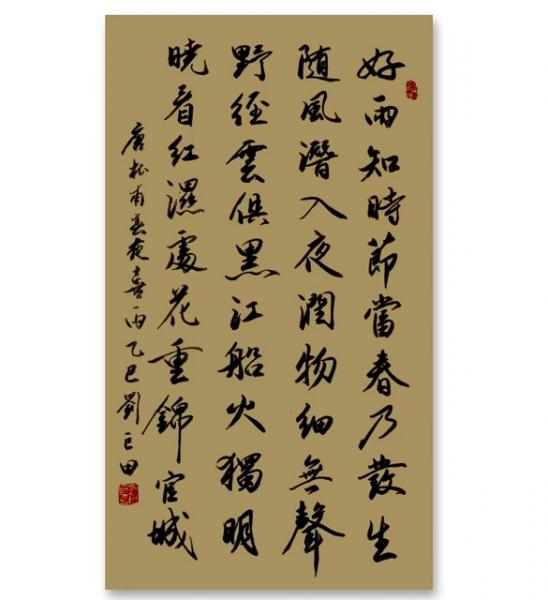 好雨知時節當春乃發生
随風潛入夜潤物细無聲
野徑雲俱黑江船火獨明
曉看红濕處花重錦官城
唐杜甫春夜喜雨乙巳劉已田